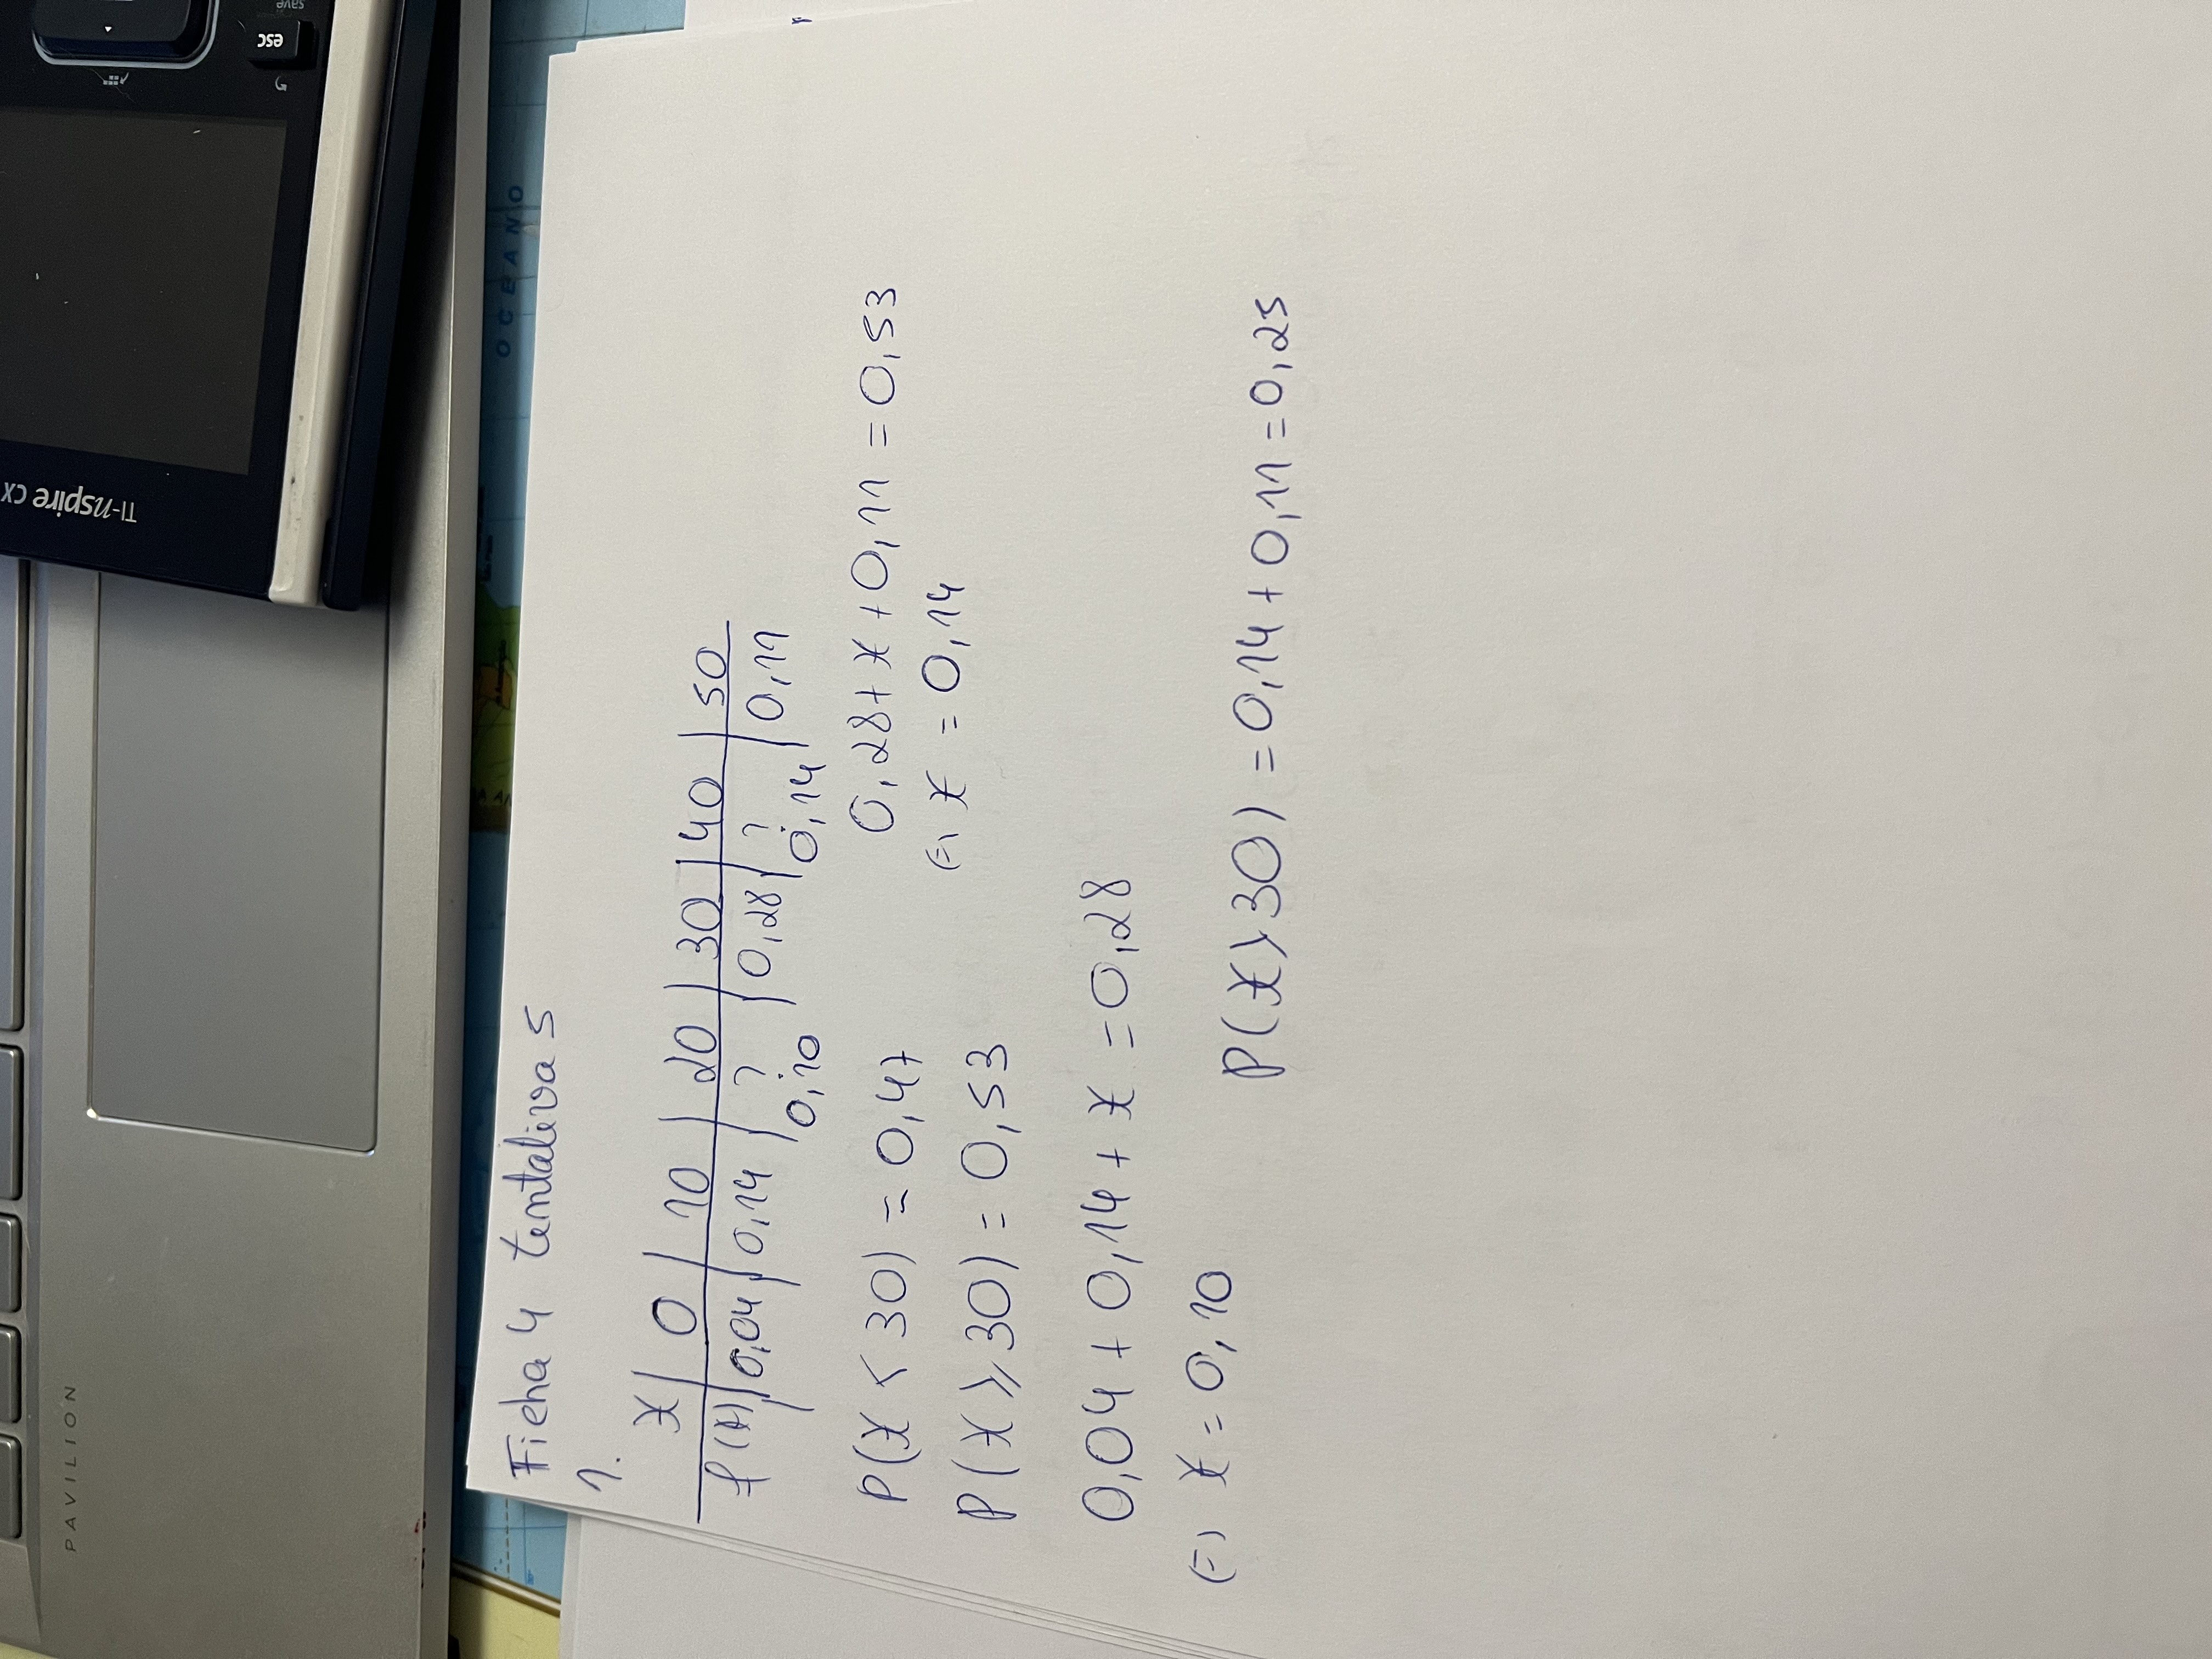 PAVILION
TI-nspire CX
esc
save
OCEANO
Ficha 4 tentativa 5
1.
X | 0 | 10 | 20 | 30 | 40 | 50
f(x) | 0,04 | 0,14 | ? | 0,28 | ? | 0,11
0,10 0,14
P(X < 30) = 0,47
0,28 + x + 0,11 = 0,53
(=) x = 0,14
P(X ⩾ 30) = 0,53
0,04 + 0,14 + x = 0,28
(=) x = 0,10
P(X > 30) = 0,14 + 0,11 = 0,25